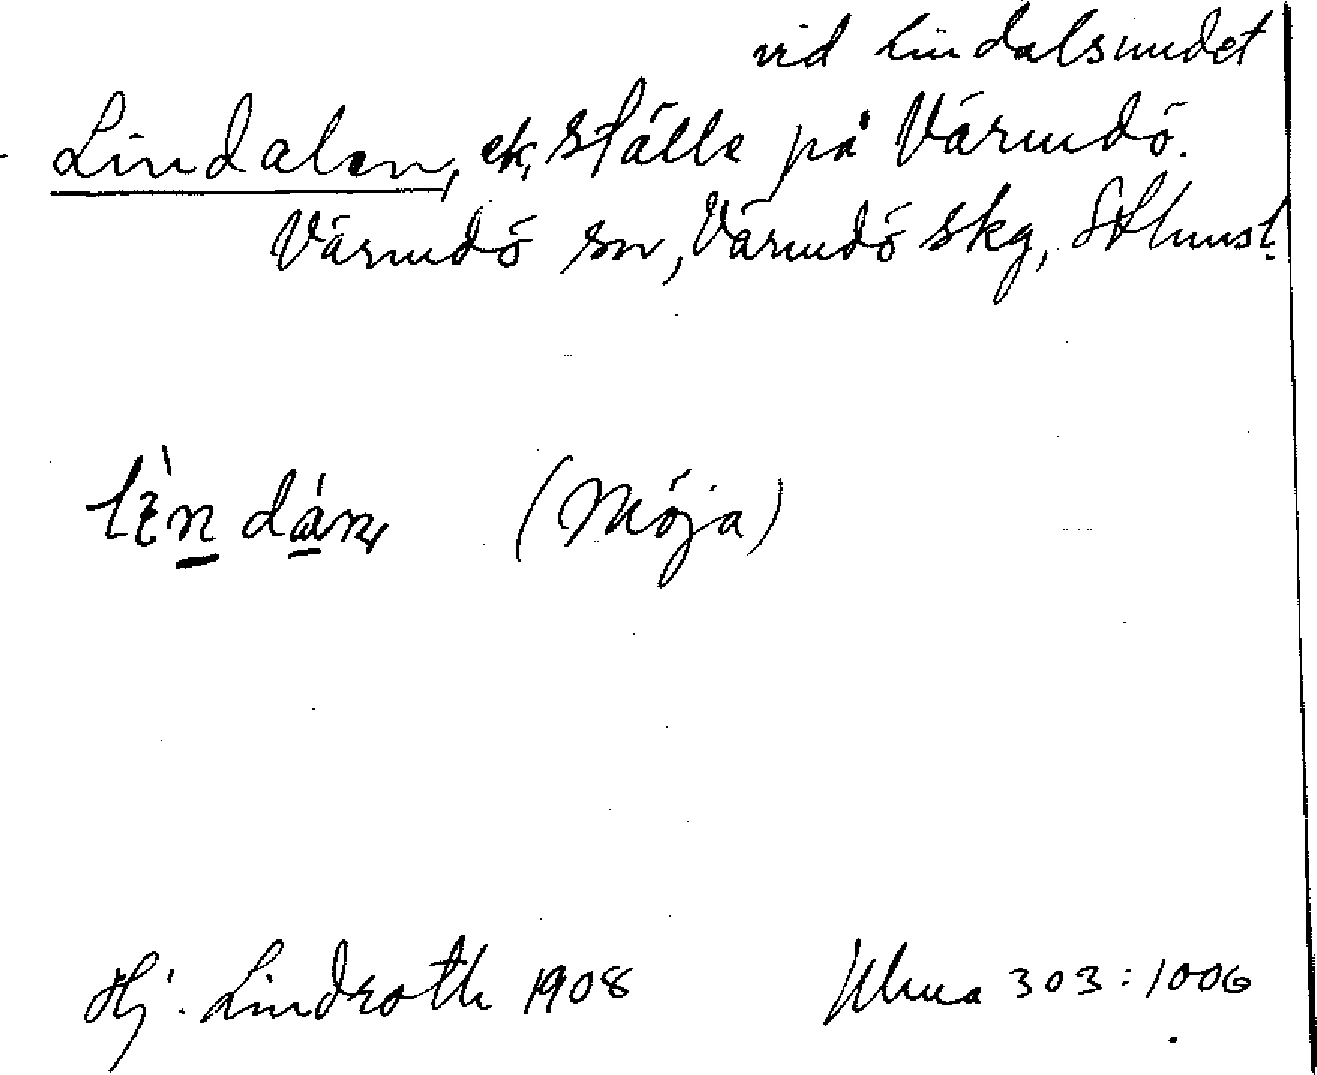 vid Lindalsundet
Lindalen, ek, ställe på Värmdö.
Värmdö sn, Värmdö skg, Sthmsl.
lèn dán (Möja)
Hj. Lindroth 1908 303:1006